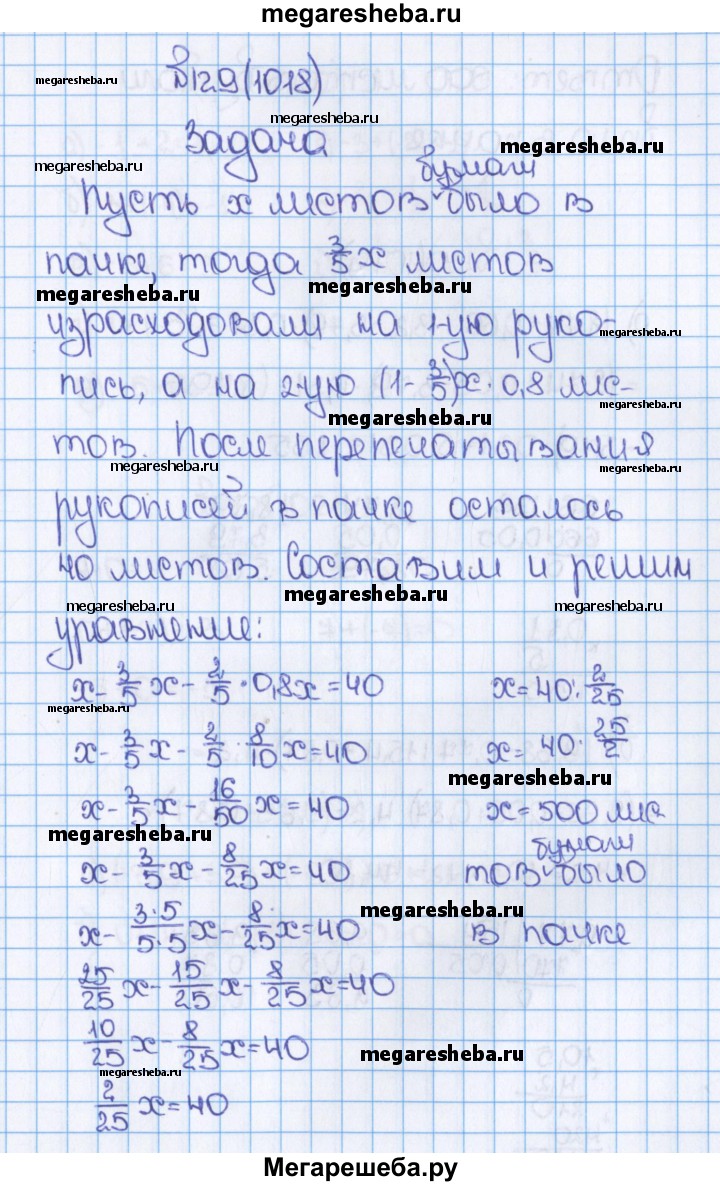 megaresheba.ru
№129(1018)
megaresheba.ru
megaresheba.ru
Задача
megaresheba.ru
megaresheba.ru
бумаги
Пусть x листов было в
пачке, тогда 3/5 x листов
megaresheba.ru
megaresheba.ru
израсходовали на 1-ую руко-
megaresheba.ru
пись, а на 2-ую (1-3/5)x·0,8 лис-
megaresheba.ru
тов. После перепечатывания
megaresheba.ru
megaresheba.ru
рукописей в пачке осталось
40 листов. Составим и решим
megaresheba.ru
megaresheba.ru
megaresheba.ru
уравнение:
x-3/5 x-2/5·0,8x=40
megaresheba.ru
x-3/5 x-2/5·8/10 x=40
x-3/5 x-16/50 x=40
megaresheba.ru
x-3/5 x-8/25 x=40
x-3·5/5·5 x-8/25 x=40
25/25 x-15/25 x-8/25 x=40
10/25 x-8/25 x=40
megaresheba.ru
2/25 x=40
x=40:2/25
x=40·25/2
megaresheba.ru
x=500 лис
бумаги
тов было
megaresheba.ru
в пачке
megaresheba.ru
Мегарешеба.ру